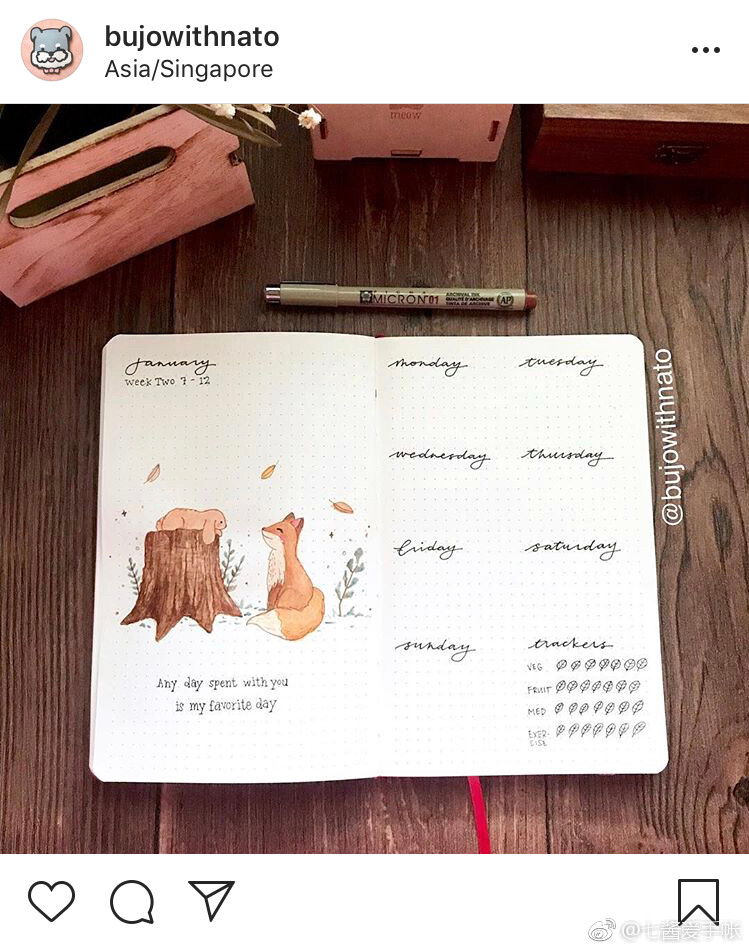 bujowithnato
Asia/Singapore
meow
MICRON 01
ARCHIVAL INK
QUALITÉ D'ARCHIVES
TINTA DE ARCHIVO
AP
january
week Two 7 - 12
Any day spent with you
is my favorite day
monday
tuesday
wednesday
thursday
friday
saturday
sunday
trackers
VEG
FRUIT
MED
EXER-
CISE
@bujowithnato
@七酱爱手帐